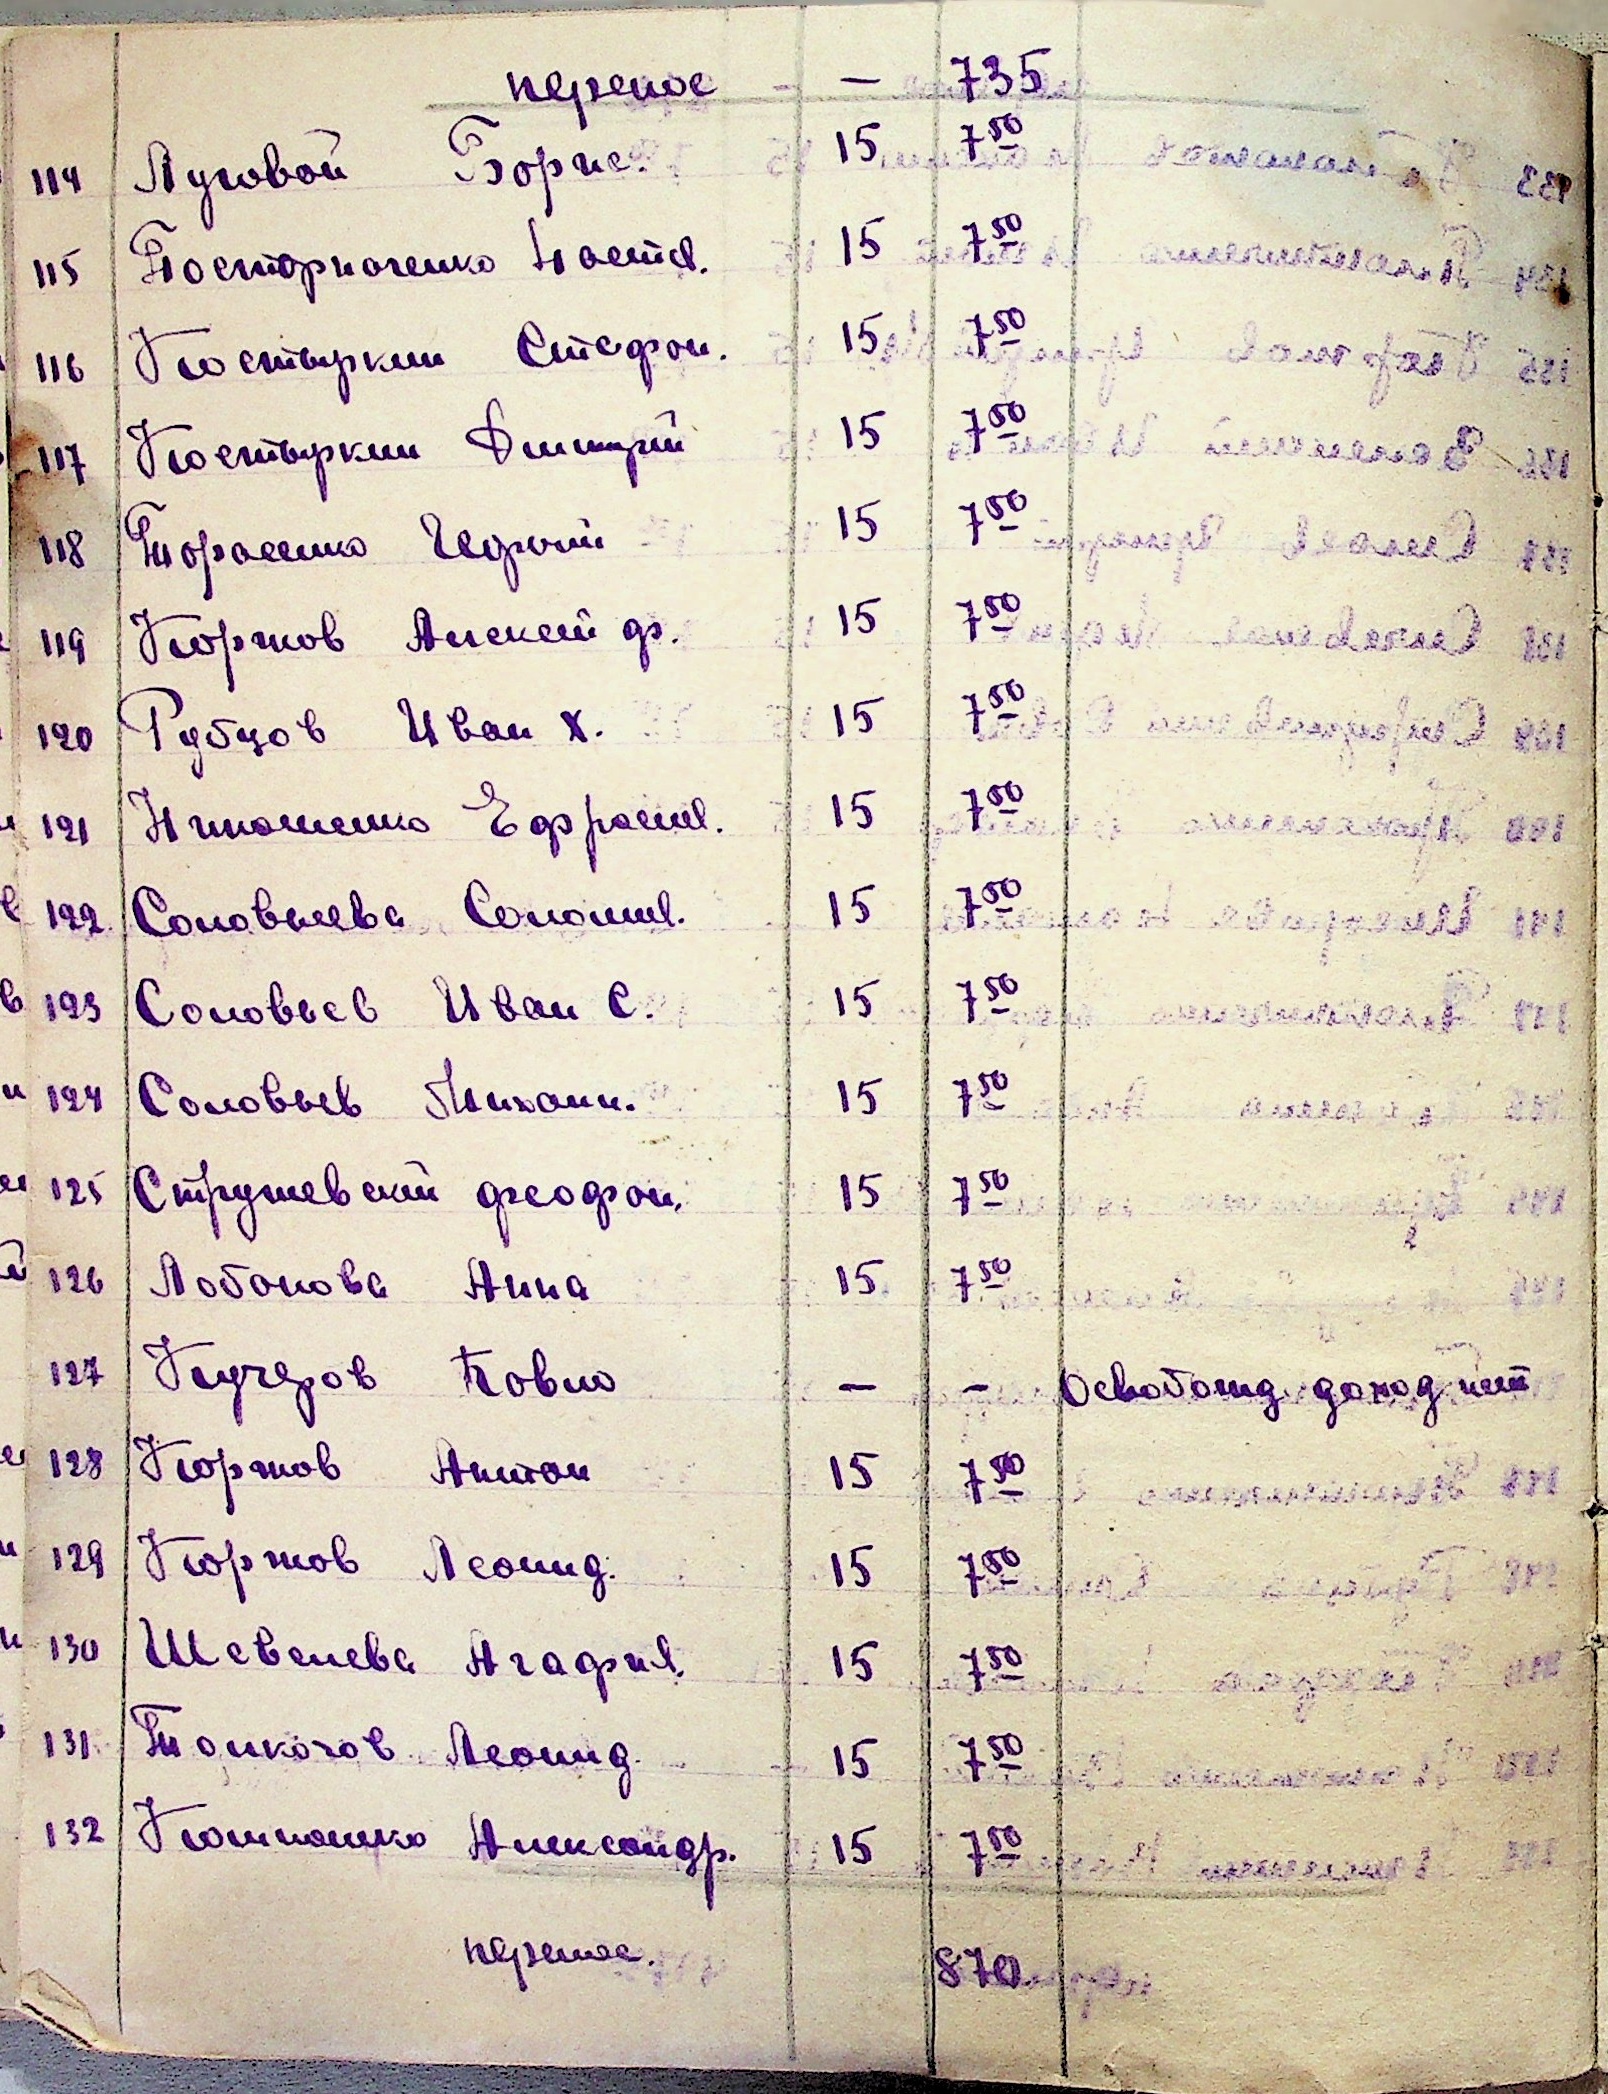 перенос - - 735
114 Луговой Борис. 15 7 50
115 Насті. 15 7 50
116 Костыркин Стефан. 15 7 50
117 Костыркин Дмитрий 15 7 50
118 Тарасенко 15 7 50
119 Коржов Алексей ф. 15 7 50
120 Рубцов Иван Х. 15 7 50
121 15 7 50
122 Соловьева Соломия. 15 7 50
123 Соловьев Иван С. 15 7 50
124 Соловьев Михаил. 15 7 50
125 Стружевский феофан. 15 7 50
126 Лобанова Анна 15 7 50
127 Кучеров Павло - - Освобожд. доход нет
128 Коржов Антон 15 7 50
129 Коржов Леонид. 15 7 50
130 Шевелева Агафия. 15 7 50
131 Толкачов Леонид 15 7 50
132 Александр. 15 7 50
перенос. 870